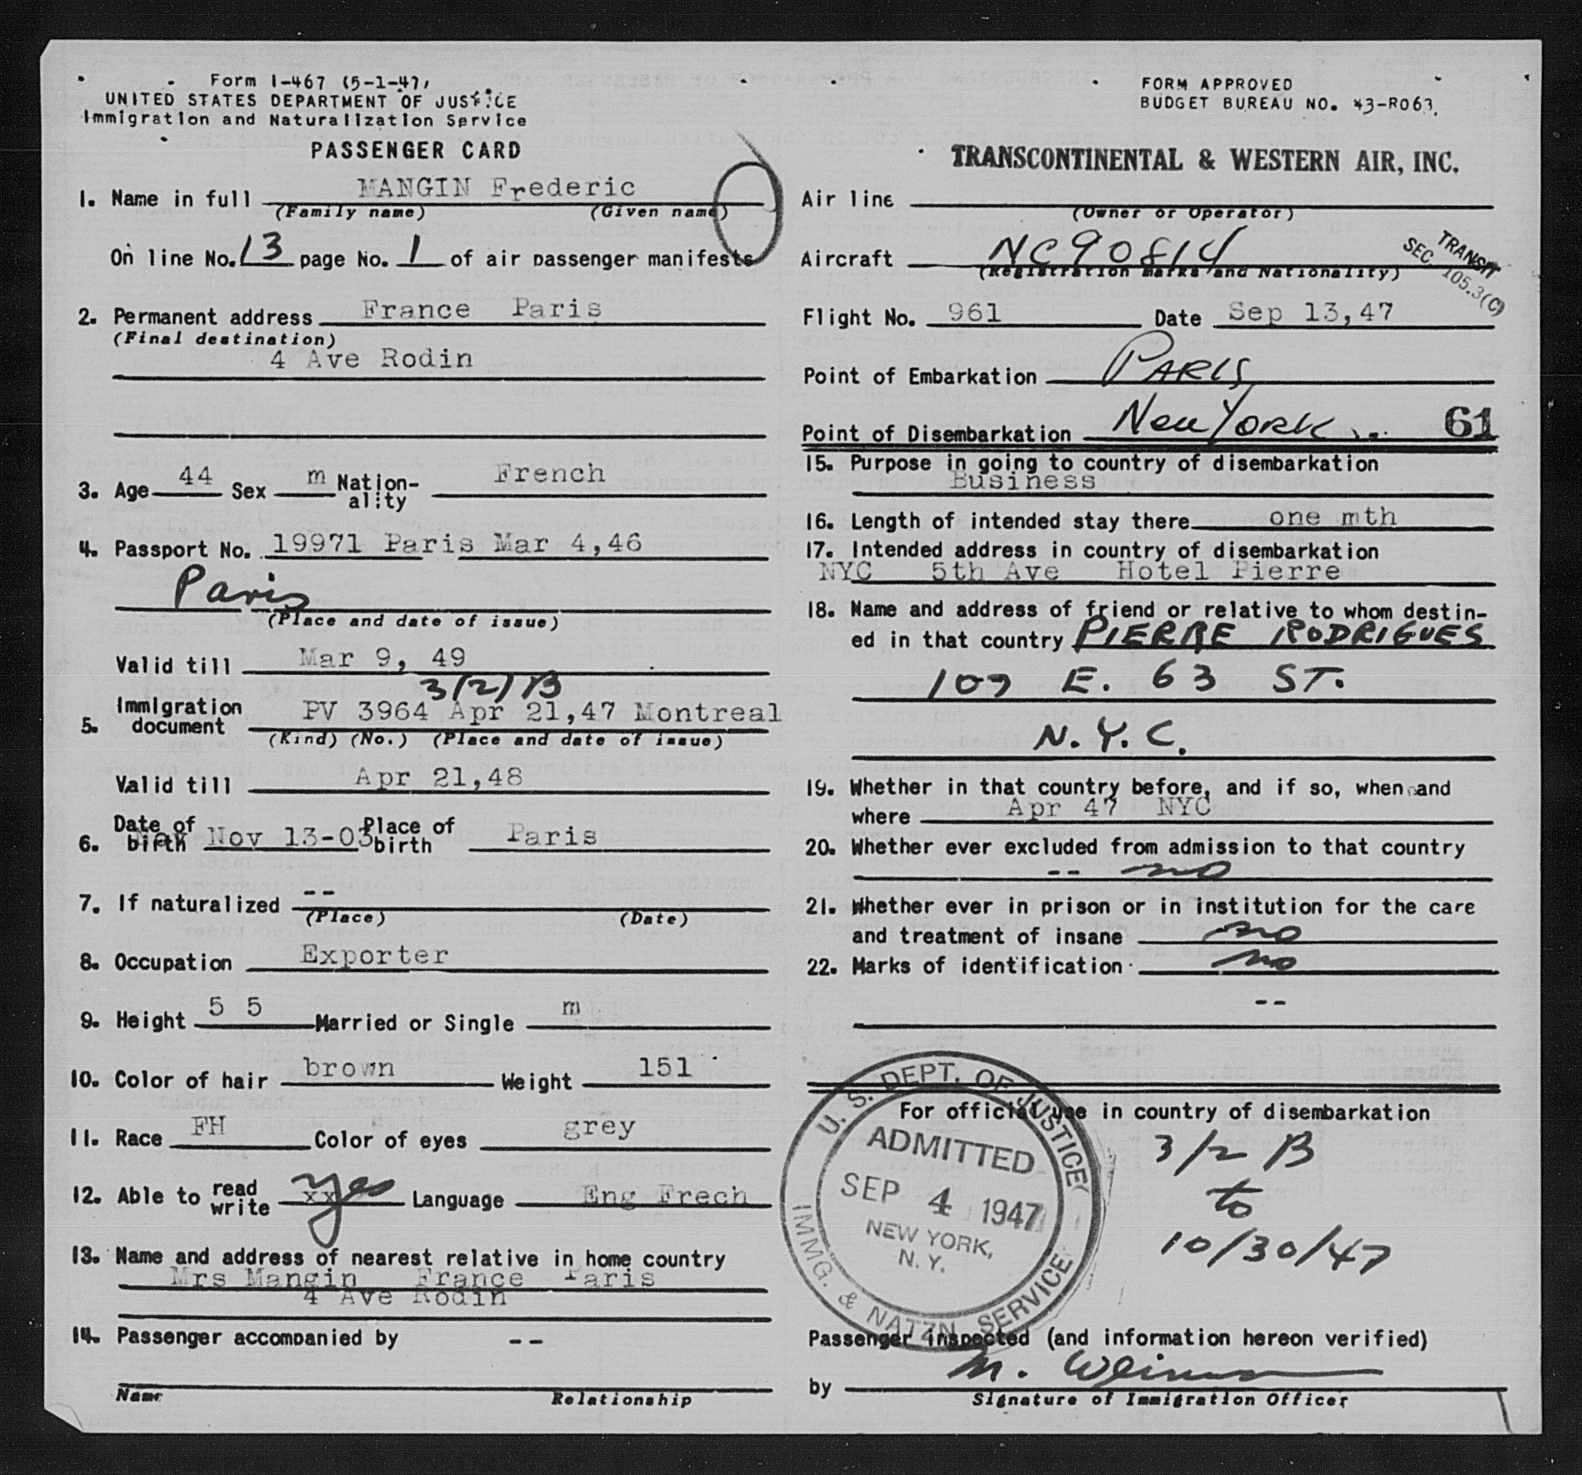 Form I-467 (5-1-47)
UNITED STATES DEPARTMENT OF JUSTICE
Immigration and Naturalization Service
PASSENGER CARD
1. Name in full MANGIN Frederic
(Family name) (Given name)
On line No. 13 page No. 1 of air passenger manifests
2. Permanent address France Paris
(Final destination)
4 Ave Rodin
3. Age 44 Sex m Nation-
ality French
4. Passport No. 19971 Paris Mar 4,46
Paris
(Place and date of issue)
Valid till Mar 9, 49
3(2)B
5. Immigration
document PV 3964 Apr 21,47 Montreal
(Kind) (No.) (Place and date of issue)
Valid till Apr 21,48
6. Date of
birth Nov 13-03 Place of
birth Paris
7. If naturalized --
(Place) (Date)
8. Occupation Exporter
9. Height 5 5 Married or Single m
10. Color of hair brown Weight 151
11. Race FH Color of eyes grey
12. Able to read
write xx yes Language Eng Frech
13. Name and address of nearest relative in home country
Mrs Mangin France Paris
4 Ave Rodin
14. Passenger accompanied by --
Name Relationship
FORM APPROVED
BUDGET BUREAU NO. 43-R063.
TRANSCONTINENTAL & WESTERN AIR, INC.
Air line
(Owner or Operator)
Aircraft NC90814
(Registration marks and Nationality)
TRANSIT
SEC. 105.3(C)
Flight No. 961 Date Sep 13,47
Point of Embarkation PARIS
Point of Disembarkation New York 61
15. Purpose in going to country of disembarkation
Business
16. Length of intended stay there one mth
17. Intended address in country of disembarkation
NYC 5th Ave Hotel Pierre
18. Name and address of friend or relative to whom destin-
ed in that country PIERRE RODRIGUES
107 E. 63 ST.
N.Y.C.
19. Whether in that country before, and if so, when and
where Apr 47 NYC
20. Whether ever excluded from admission to that country
-- no
21. Whether ever in prison or in institution for the care
and treatment of insane no
22. Marks of identification no
--
For official use in country of disembarkation
3/2 B
to
10/30/47
U. S. DEPT. OF JUSTICE
ADMITTED
SEP 4 1947
NEW YORK,
N. Y.
IMMG. & NATZN. SERVICE
Passenger inspected (and information hereon verified)
by M.
Signature of Immigration Officer